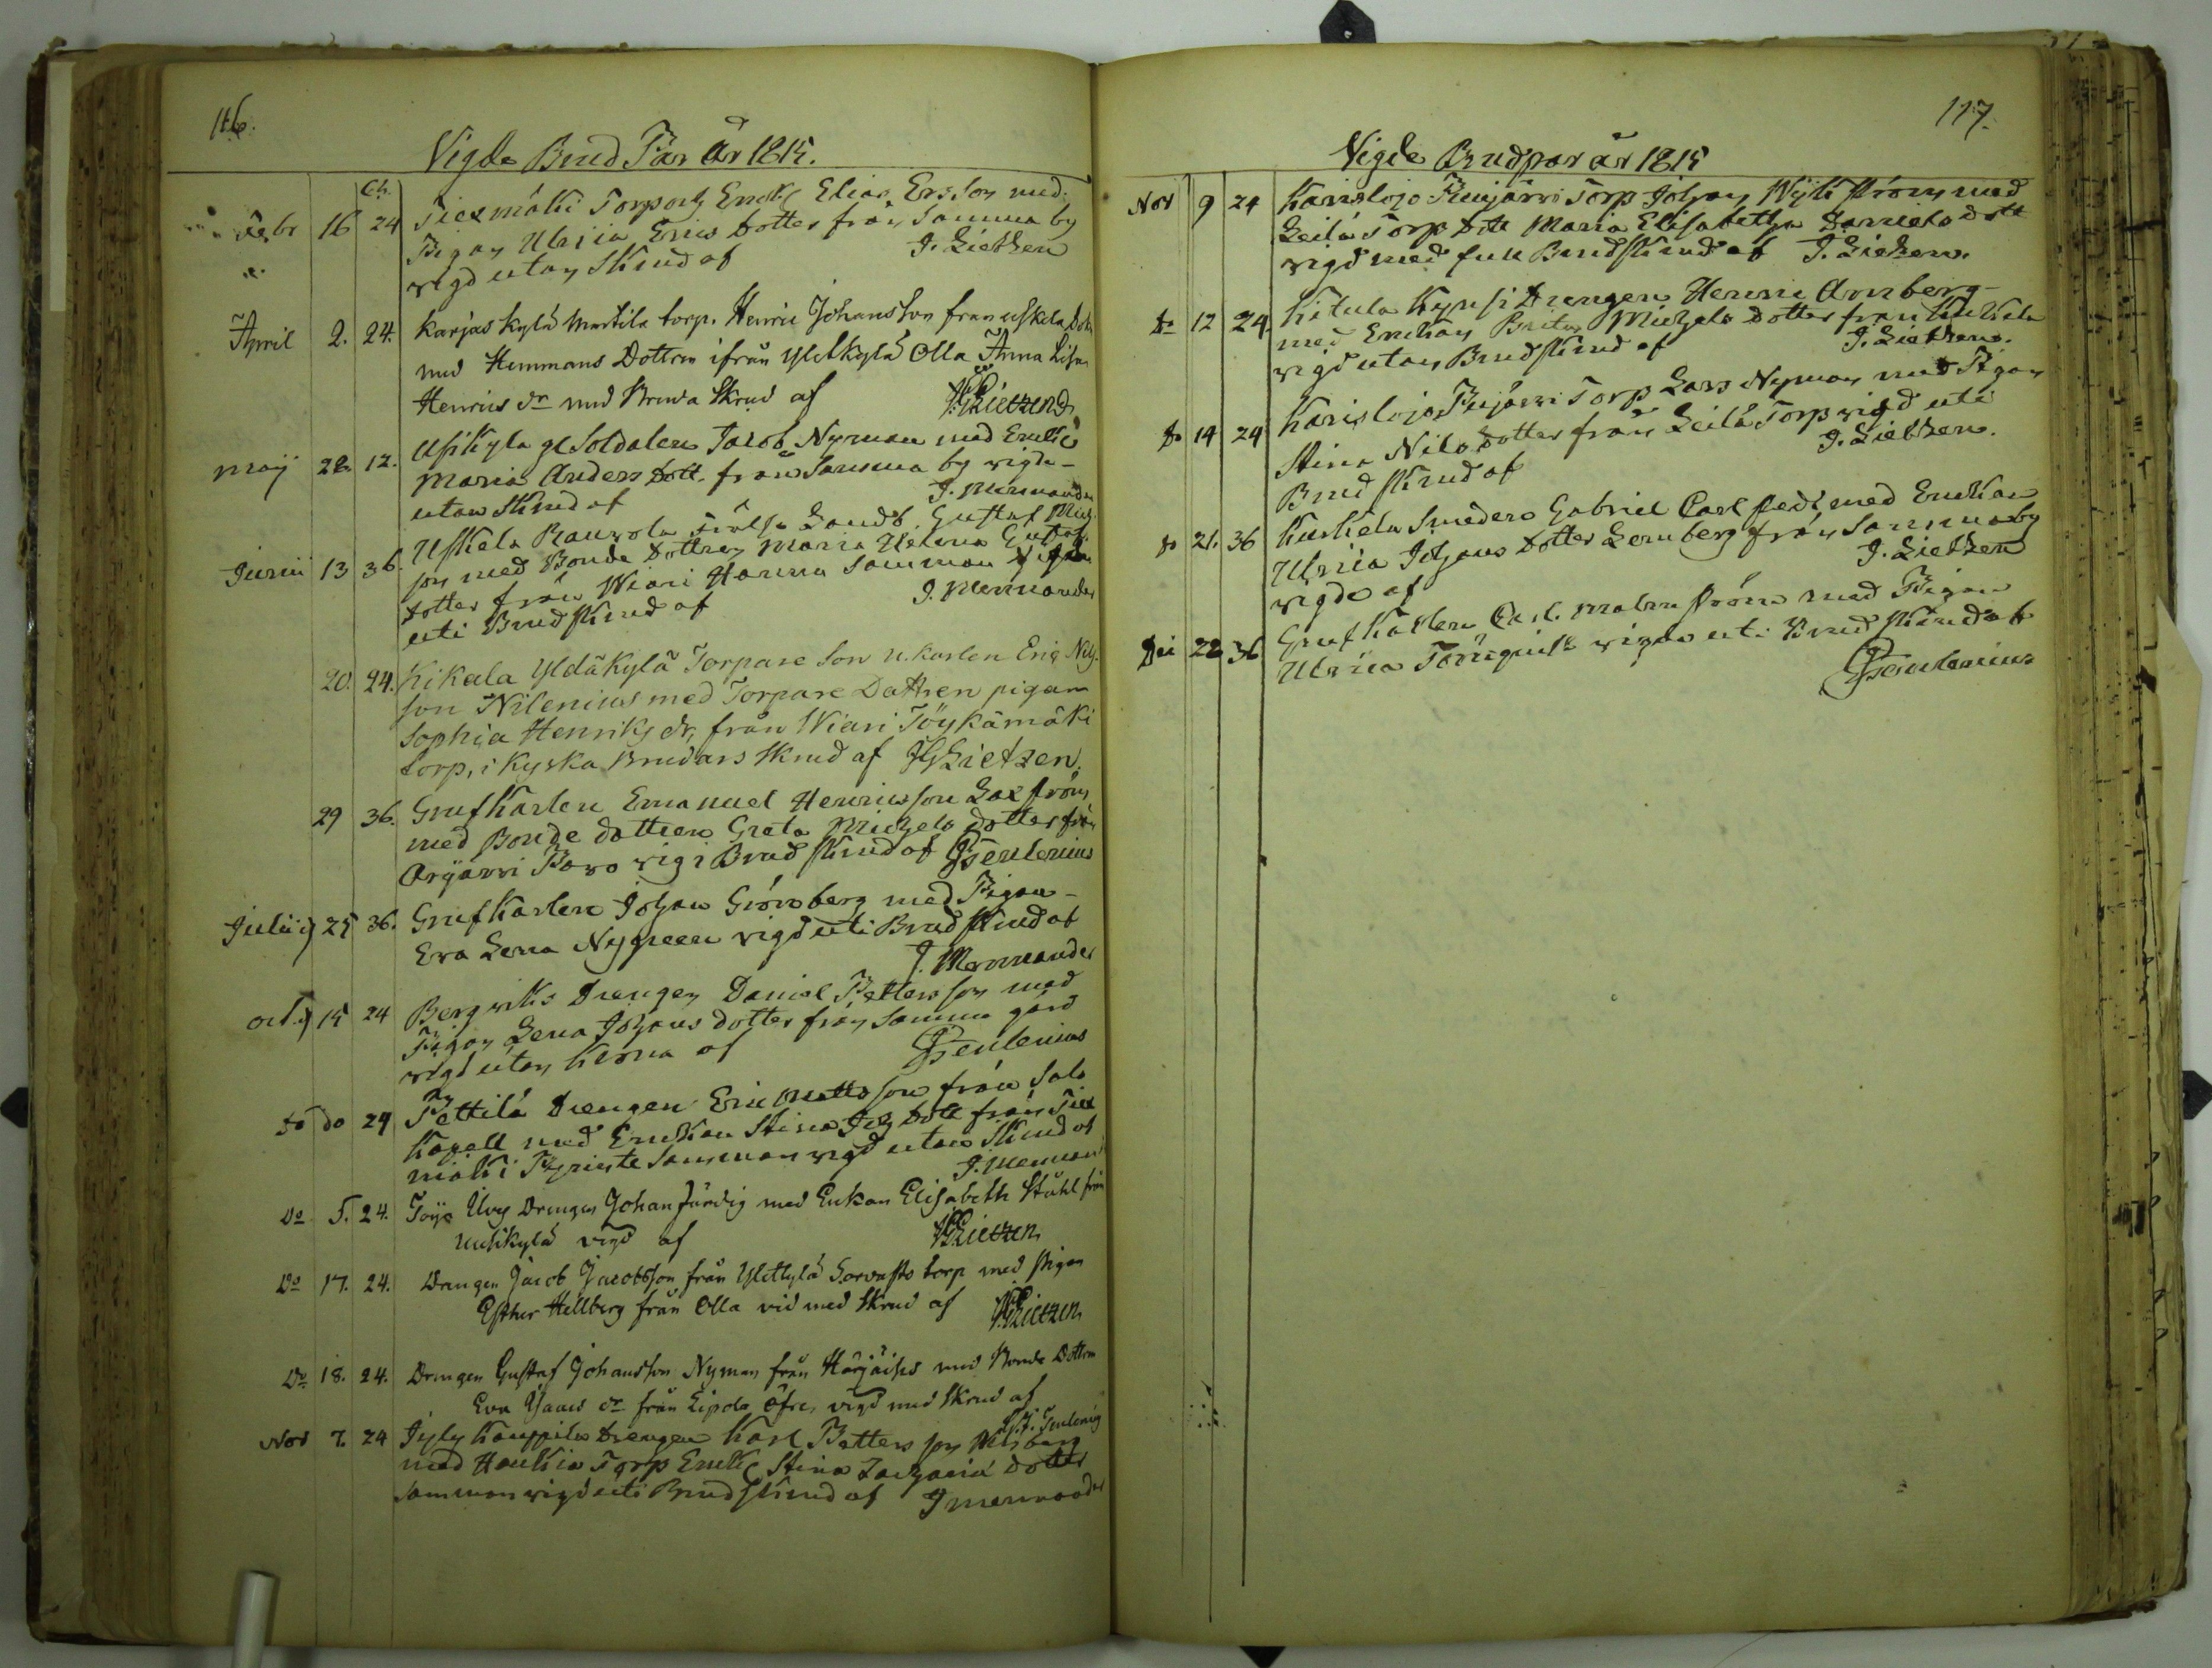 116.
Vigde Brud Par År 1815.
Cb.
Febr 16 24 Tiexmäki Torpens Enkl Elias Ersson med
Pigan Ulrica Erics dotter från Samma by
vigd utan Skrud af J. Zietzen
April 2. 24. Karjaskylä Martila torp. Henric Johansson från uskela Sokn
med Hemmans Dottren ifrån Yletkylä Olla Anna Lisa
Henrics dr med Bruda Skrud af Zietzen
Maij 22. 12. Usikyla gl Soldaten Jacob Nyman med Enk
Maria Anders Dott. från Samma by vigde
utan Skrud af J. Mennander
Junii 13 36. Uskela frälse Landb. Gustaf Mich
son med Bonde Dottren Maria Helena Gustaf
dotter från Wiari Hannu Samman vigda
uti Brudskrud af J. Mennander
20. 24. Kikala Yldäkylä Torpare Son n.karlen Eric Nils
son Nilenius med Torpare Dottren pigan
Sophia Henriks dr, från Wiari Töykämäki
torp, i Kyska Brudars Skrud af Zietzen.
29 36. Grufkarlen Emanuel Henricsson Laxström
med Bonde dottren Greta Michels dotter från
Arijärvi vigd i Brudskrud af Teulenius
Julii 25 36. Grufkarlen Johan Grönberg med Pigan
Eva Lena Nygreen vigd uti Brudskrud af
J. Mennander
Oct. 15 24 Bergwiks Drengen Daniel Petters son med
Pigan Lena Johans dotter från Samma gård
vigd utan Krona af Teulenius
do do 24 Pettilä Drengen Eric Matts son från Salo
Kapell med Enkan Stina dott från Tiex
mäki Samman vigd utan Skrud af
J. Mennand
Do 5. 24. Toija Uvy Drengen Johan Färdig med Enkan Elisabeth Ståhl från
Uusikylä vigd af Zietzen
Do 17. 24. Drengen Jacob Jacobsson från Yletkylä Sorvasto torp med Pigan
Esther Hellberg från Olla vid med Skrud af Zietzen
Do 18. 24. Drengen Gustaf Johansson Nyman från Härjäis med Bonde Dottren
Eva dr från Lipola Öfre, vigd med Skrud af
Teulenius
Nov 7. 24 Jyly Kauppila Drengen Karl Petters son
med Haukia Torp Enk Stina Zachariä dotter
Samman vigd uti Brudskrud af J Mennander
117.
Vigde Brudpar år 1815
Nov 9 24 Karislojo Torp Johan Wykström med
Leilä Torp dott Maria Elisabetha Daniels dott
vigd med full Brudskrud af J. Zietzen.
Do 12 24. Kitula Kyysi Drengen Henric Arnberg
med Enkan Brita Michels dotter från Kurkela
vigd utan Brudskrud af J. Zietzen.
Do 14 24 Karislojo Torp Lars Nyman med Pigan
Stina Nils dotter från Leilä Torp vigd uti
Brudskrud af J. Zietzen.
Do 21. 36 Kurkela Smeden Gabriel Carlstedt med Enkan
Ulrica Johans dotter Lernberg från Samma by
vigde af J. Zietzen
28 36 Grufkarlen Carl Malmström med Pigan
Ulrica Törnquist vigde uti Brudskrud af
Teulenius